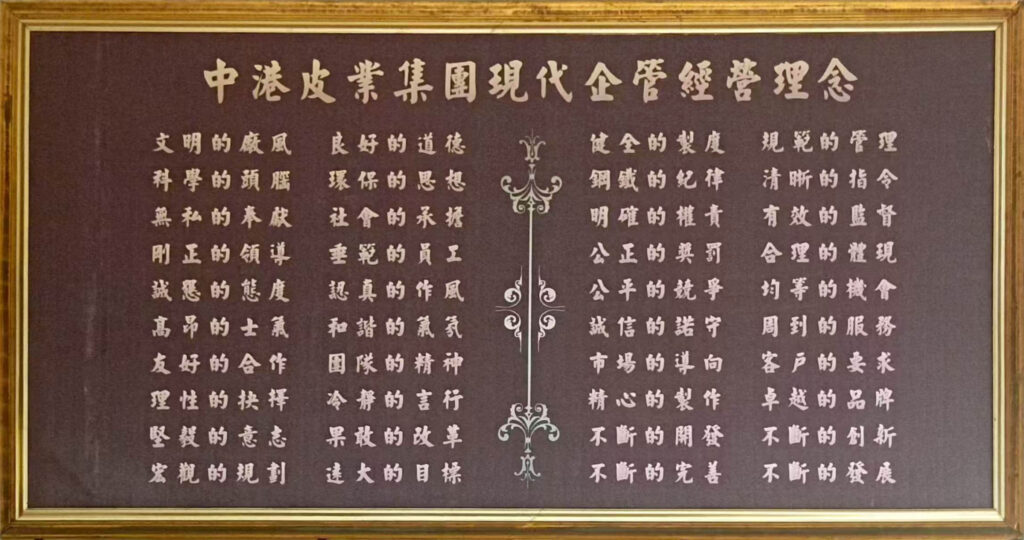 中港皮業集團現代企管經營理念
文明的廠風 良好的道德 健全的製度 規範的管理
科學的頭腦 環保的思想 鋼鐵的紀律 清晰的指令
無私的奉獻 社會的承擔 明確的權責 有效的監督
剛正的領導 垂範的員工 公正的獎罰 合理的體現
誠懇的態度 認真的作風 公平的競爭 均等的機會
高昂的士氣 和諧的氣氛 誠信的諾守 周到的服務
友好的合作 團隊的精神 市場的導向 客戶的要求
理性的抉擇 冷靜的言行 精心的製作 卓越的品牌
堅毅的意志 果敢的改革 不斷的開發 不斷的創新
宏觀的規劃 遠大的目標 不斷的完善 不斷的發展